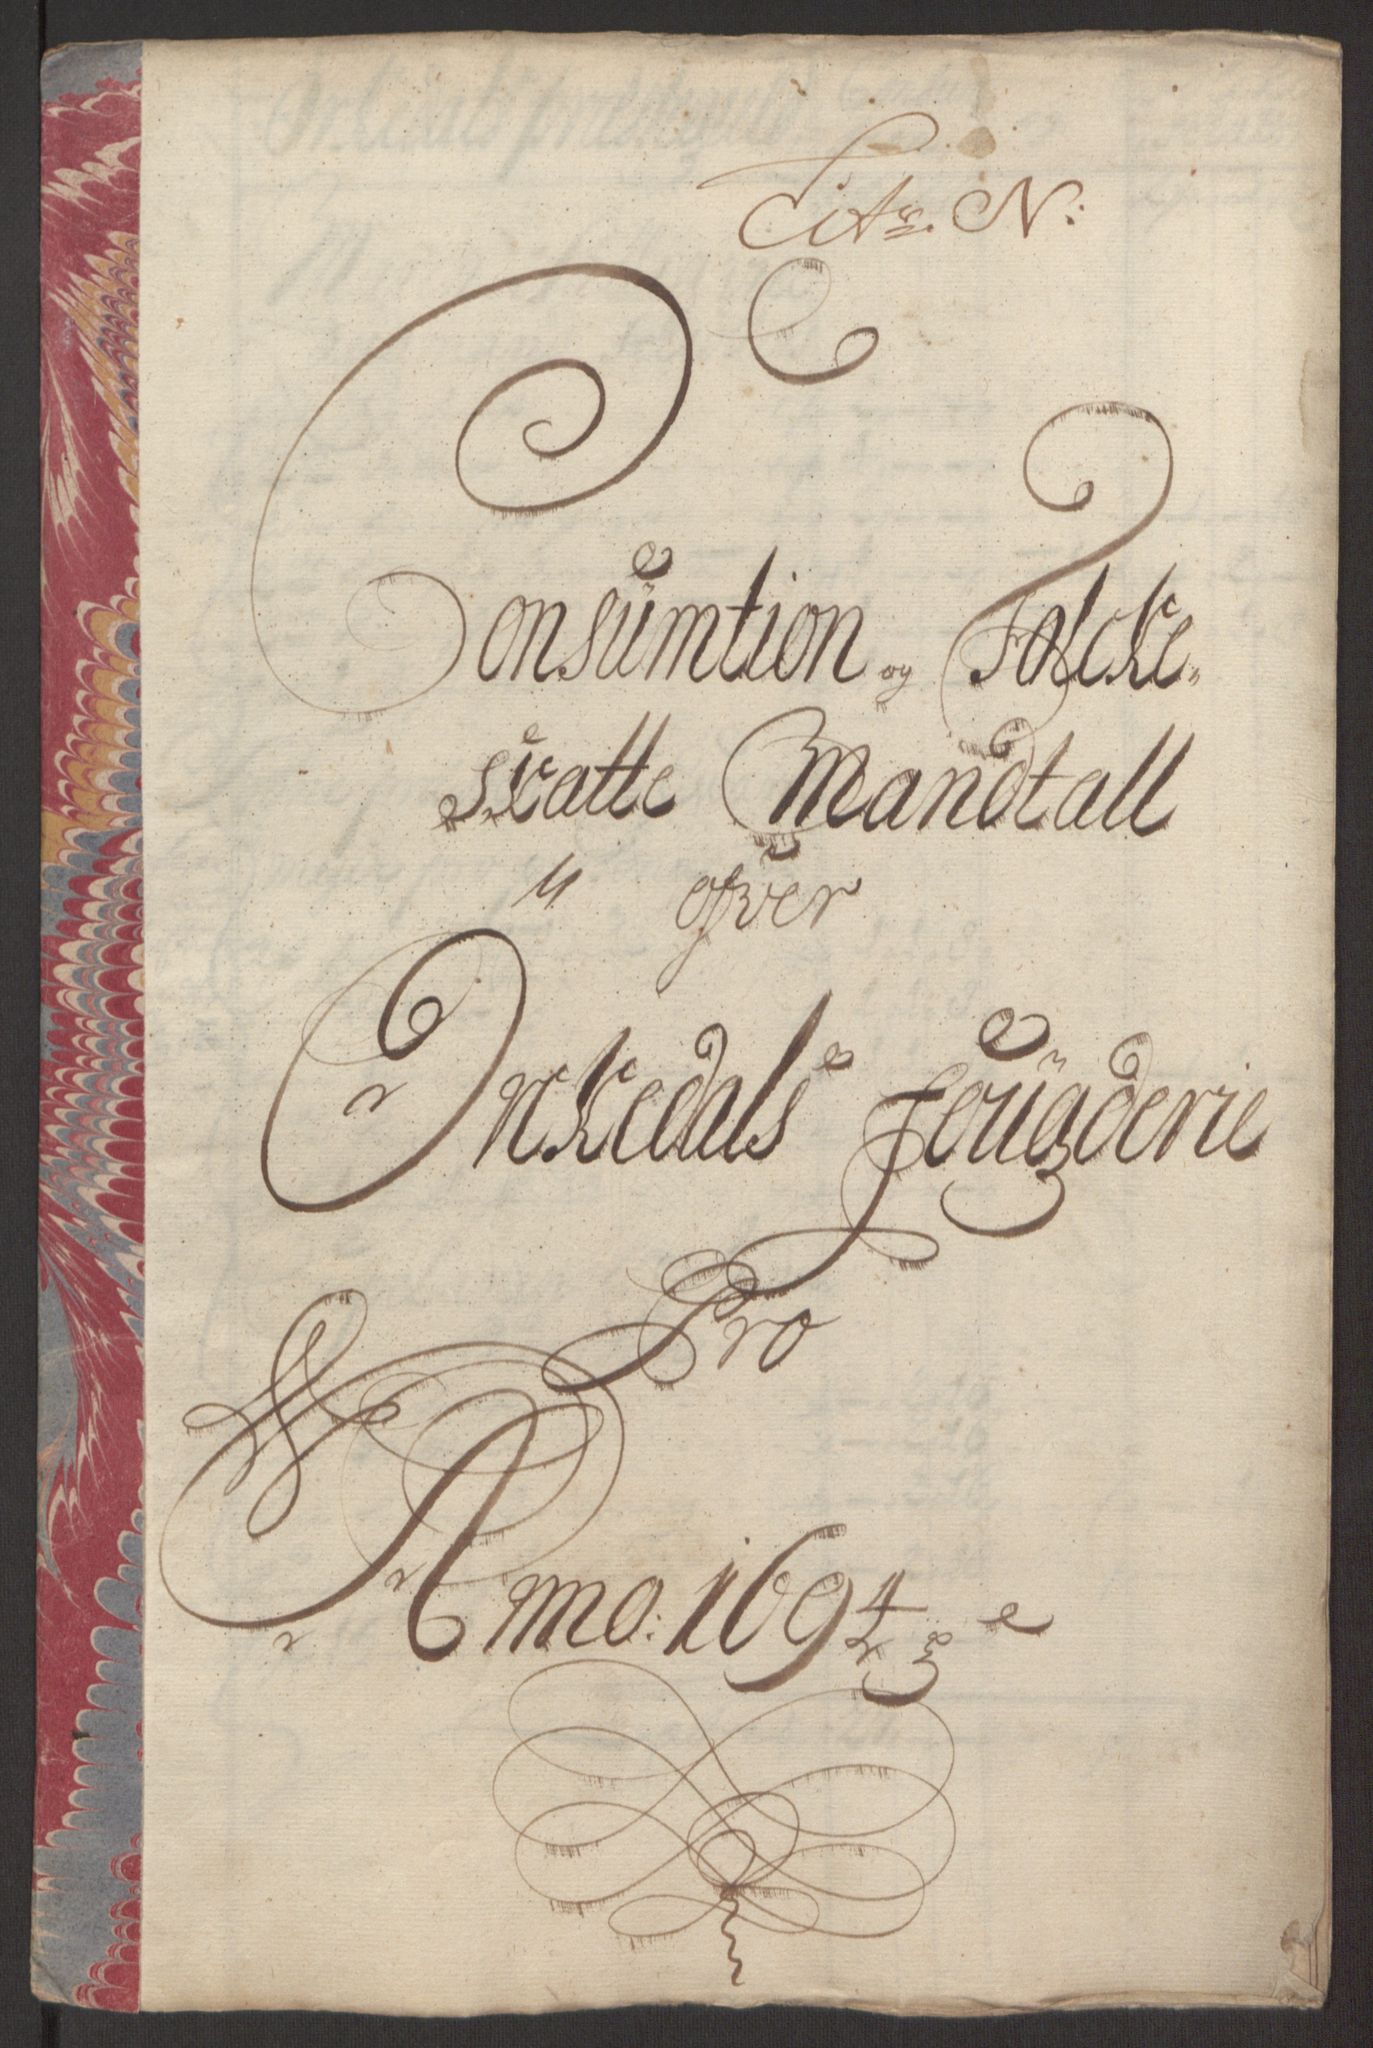 Litr. N:
Consumtion og Folcke„
Skatte Mandtall
ofver
Orkedals Fougderie
Pro
Anno: 1694